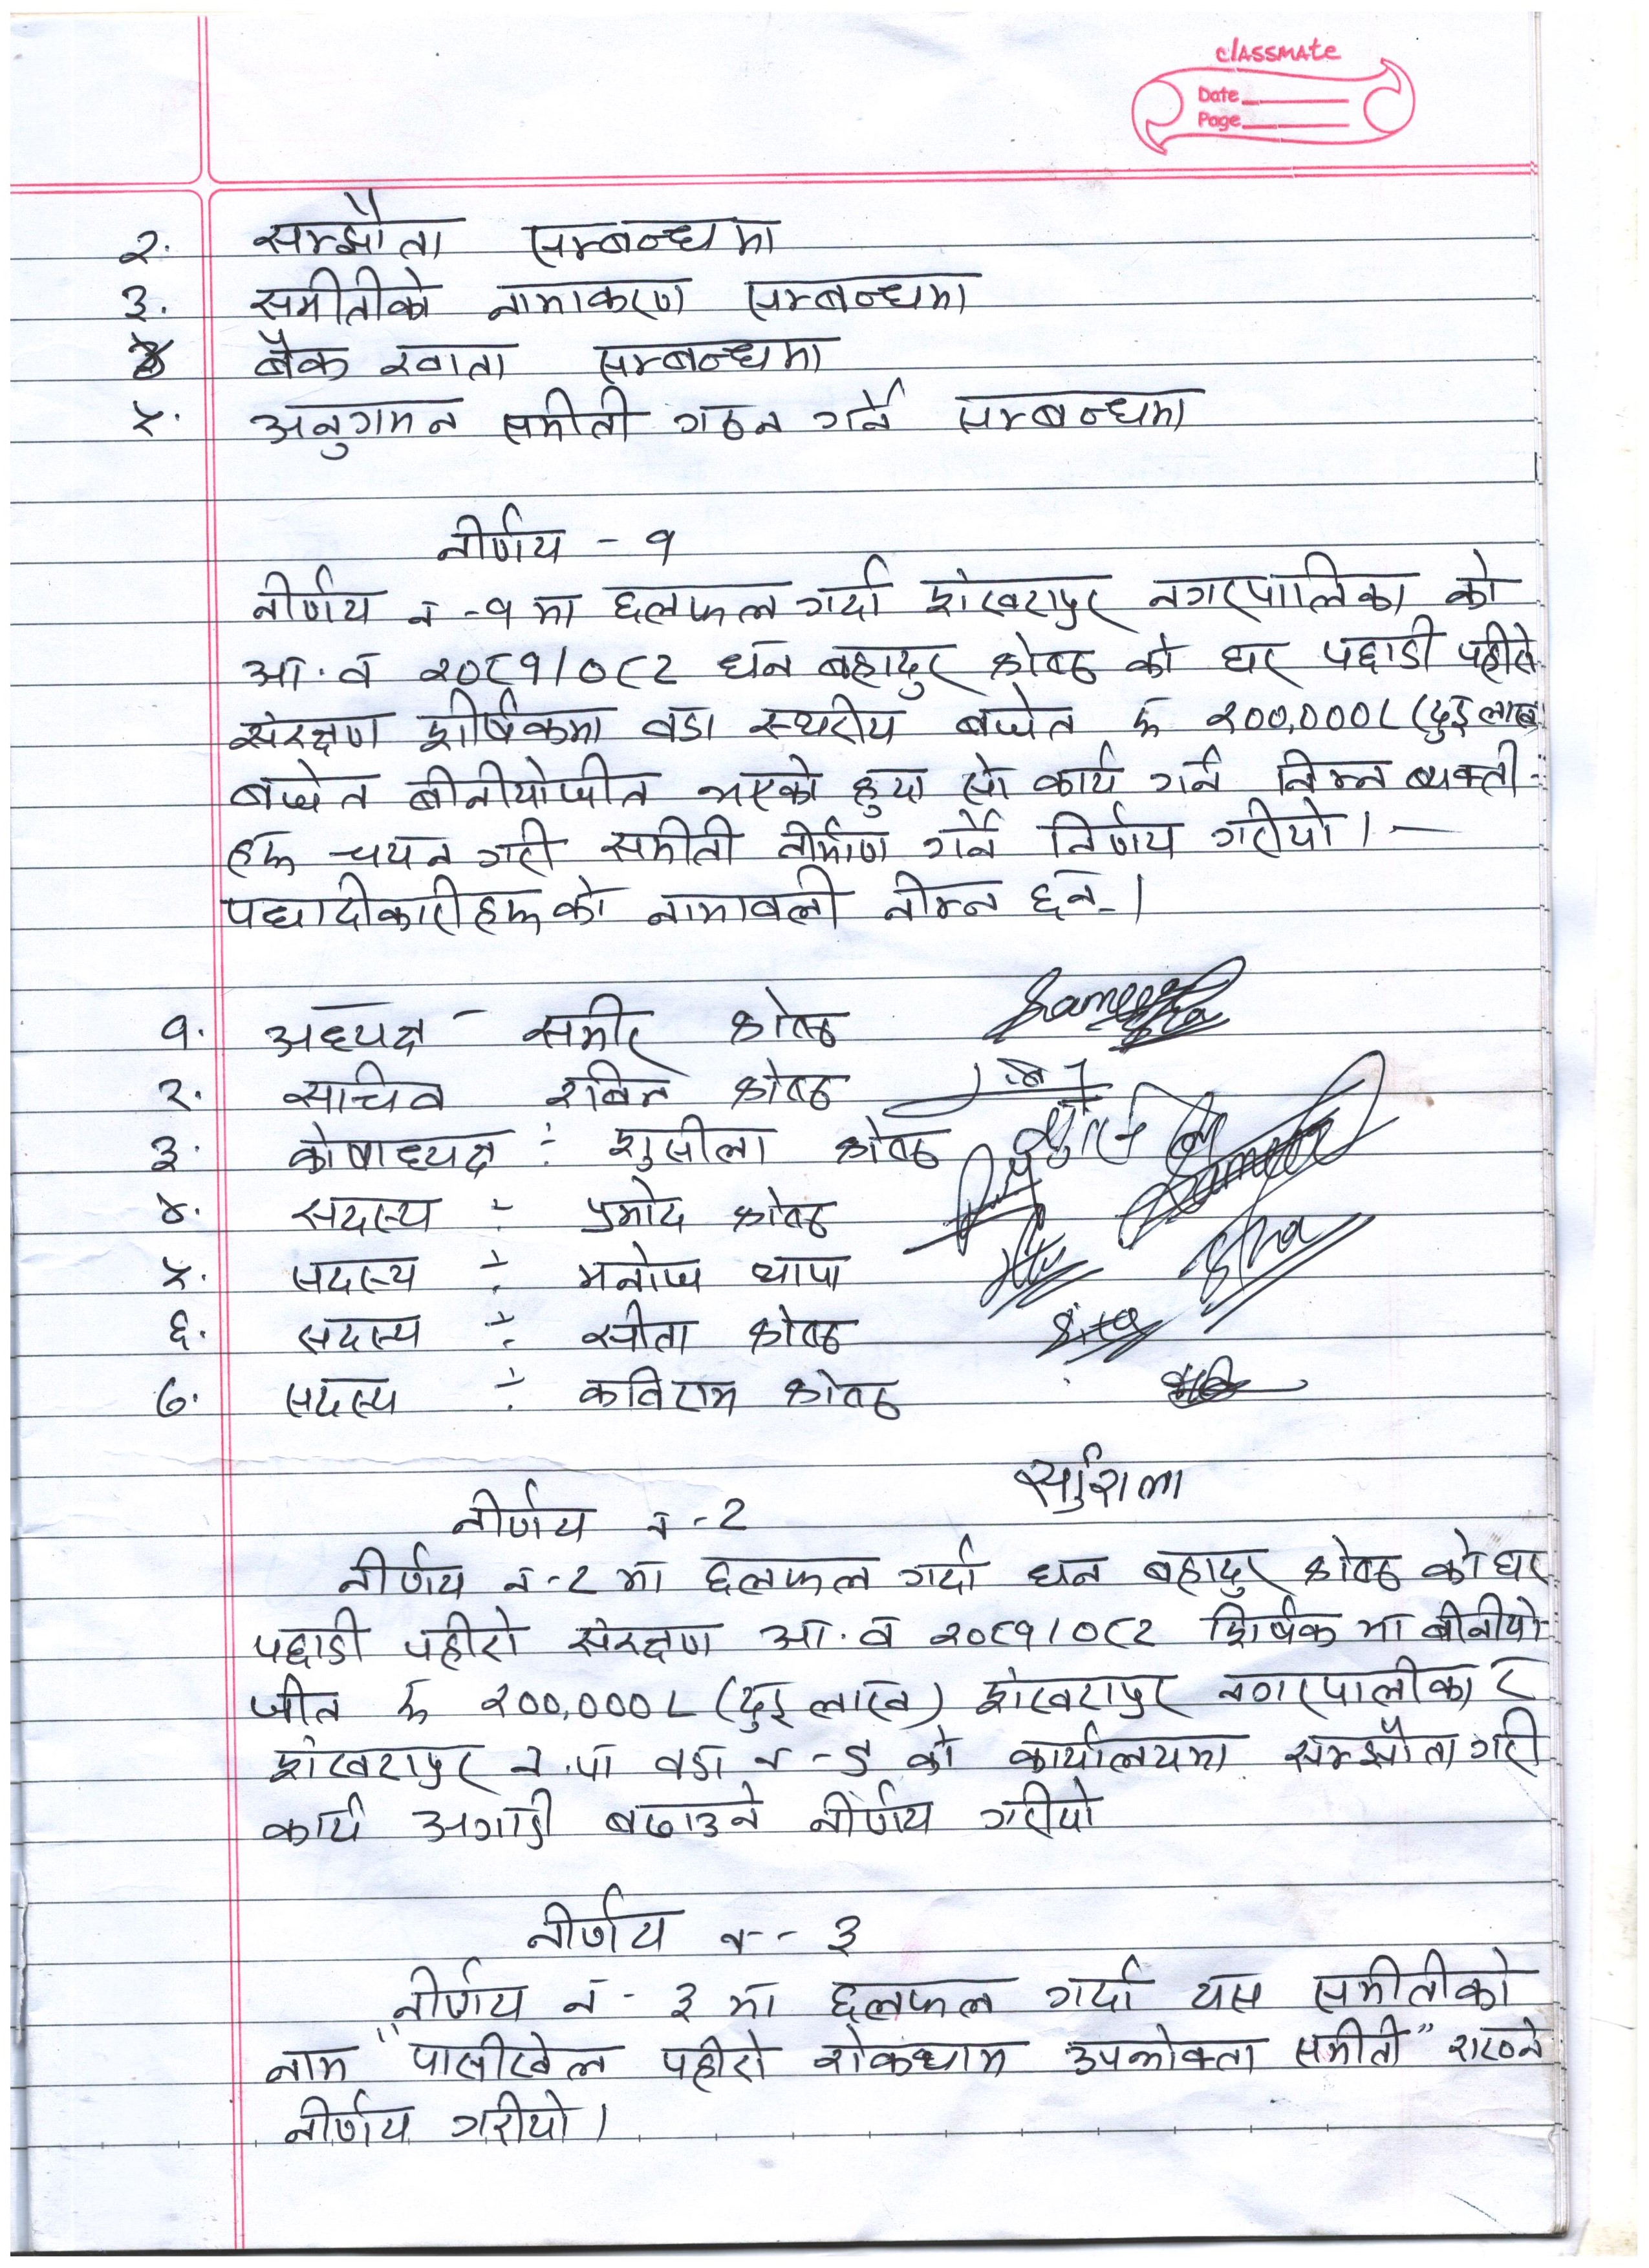 classmate
Date
Page
२. सम्झौता सम्बन्धमा
३. समीतीको नामाकरण सम्बन्धमा
४ बैंक खाता सम्बन्धमा
५. अनुगमन समीती गठन गर्ने सम्बन्धमा
नीर्णय - १
नीर्णय नं -१ मा छलफल गर्दा शंखरापुर नगरपालिका को
आ.व २०८१/०८२ धन बहादुर श्रेष्ठ को घर पछाडी पहीरो
संरक्षण शीर्षकमा वडा स्थरीय बजेत रु २००,०००८ (दुई लाख
बजेत बीनीयोजीत भएको हुदा सो कार्य गर्न निम्न ब्यक्ती-
हरू चयन गरी समीती नीर्माण गर्ने निर्णय गरीयो। —
पद्यादीकारीहरूको नामावली नीम्न छन्।
१. अध्यक्ष - समीर श्रेष्ठ
२. सचिव रबिन श्रेष्ठ
३. कोषाध्यक्ष ÷ शुसीला श्रेष्ठ
४. सदस्य ÷ प्रमोद श्रेष्ठ
५. सदस्य ÷ मनोज थापा
६. सदस्य ÷ सीता श्रेष्ठ Sita
७. सदस्य ÷ कविराम श्रेष्ठ
सुशिला
नीर्णय नं -2
नीर्णय नं -२ मा छलफल गर्दा धन बहादुर श्रेष्ठ को घर
पछाडी पहीरो संरक्षण आ.व २०८१/०८२ शिर्षक मा बीनीयो-
जीत रु २००,०००८ (दुई लाख) शंखरापुर नगरपालीका र
शंखरापुर न.पा वडा नं - ८ को कार्यालयमा सम्झौता गरी
कार्य अगाडी बढाउने नीर्णय गरीयो
नीर्णय नं - ३
नीर्णय नं - ३ मा छलफल गर्दा यस समीतीको
नाम "पासीखेल पहीरो रोकथाम उपभोक्ता समीती" राख्ने
नीर्णय गरीयो।